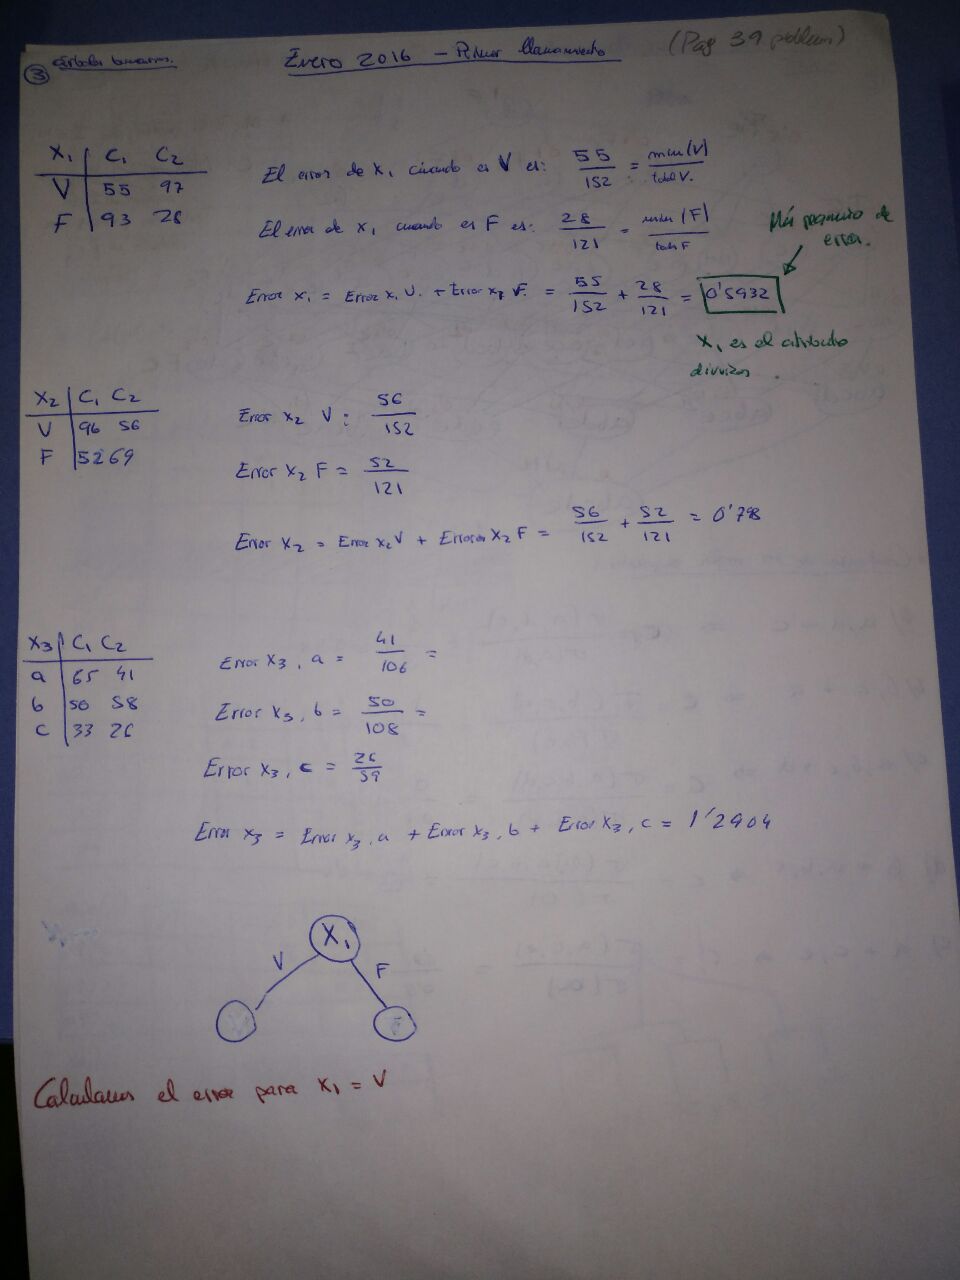 ③ árboles binarios.
Enero 2016 - Primer llamamiento
(Pag 39 problemas)
X₁ | C₁ C₂
V | 55 97
F | 93 28
El error de X₁ cuando es V es: 55/152 = min(V)/total V.
El error de X₁ cuando es F es: 28/121 = min(F)/total F
Error X₁ = Error X₁ V. + Error X₁ F. = 55/152 + 28/121 = 0'5932
Más pequeño de
error.
X₁ es el atributo
divisor.
X₂ | C₁ C₂
V | 96 56
F | 52 69
Error X₂ V: 56/152
Error X₂ F = 52/121
Error X₂ = Error X₂V + Error X₂F = 56/152 + 52/121 = 0'798
X₃ | C₁ C₂
a | 65 41
b | 50 58
c | 33 26
Error X₃, a = 41/106 =
Error X₃, b = 50/108 =
Error X₃, c = 26/59
Error X₃ = Error X₃, a + Error X₃, b + Error X₃, c = 1'2904
X₁
V F
Calculamos el error para X₁ = V